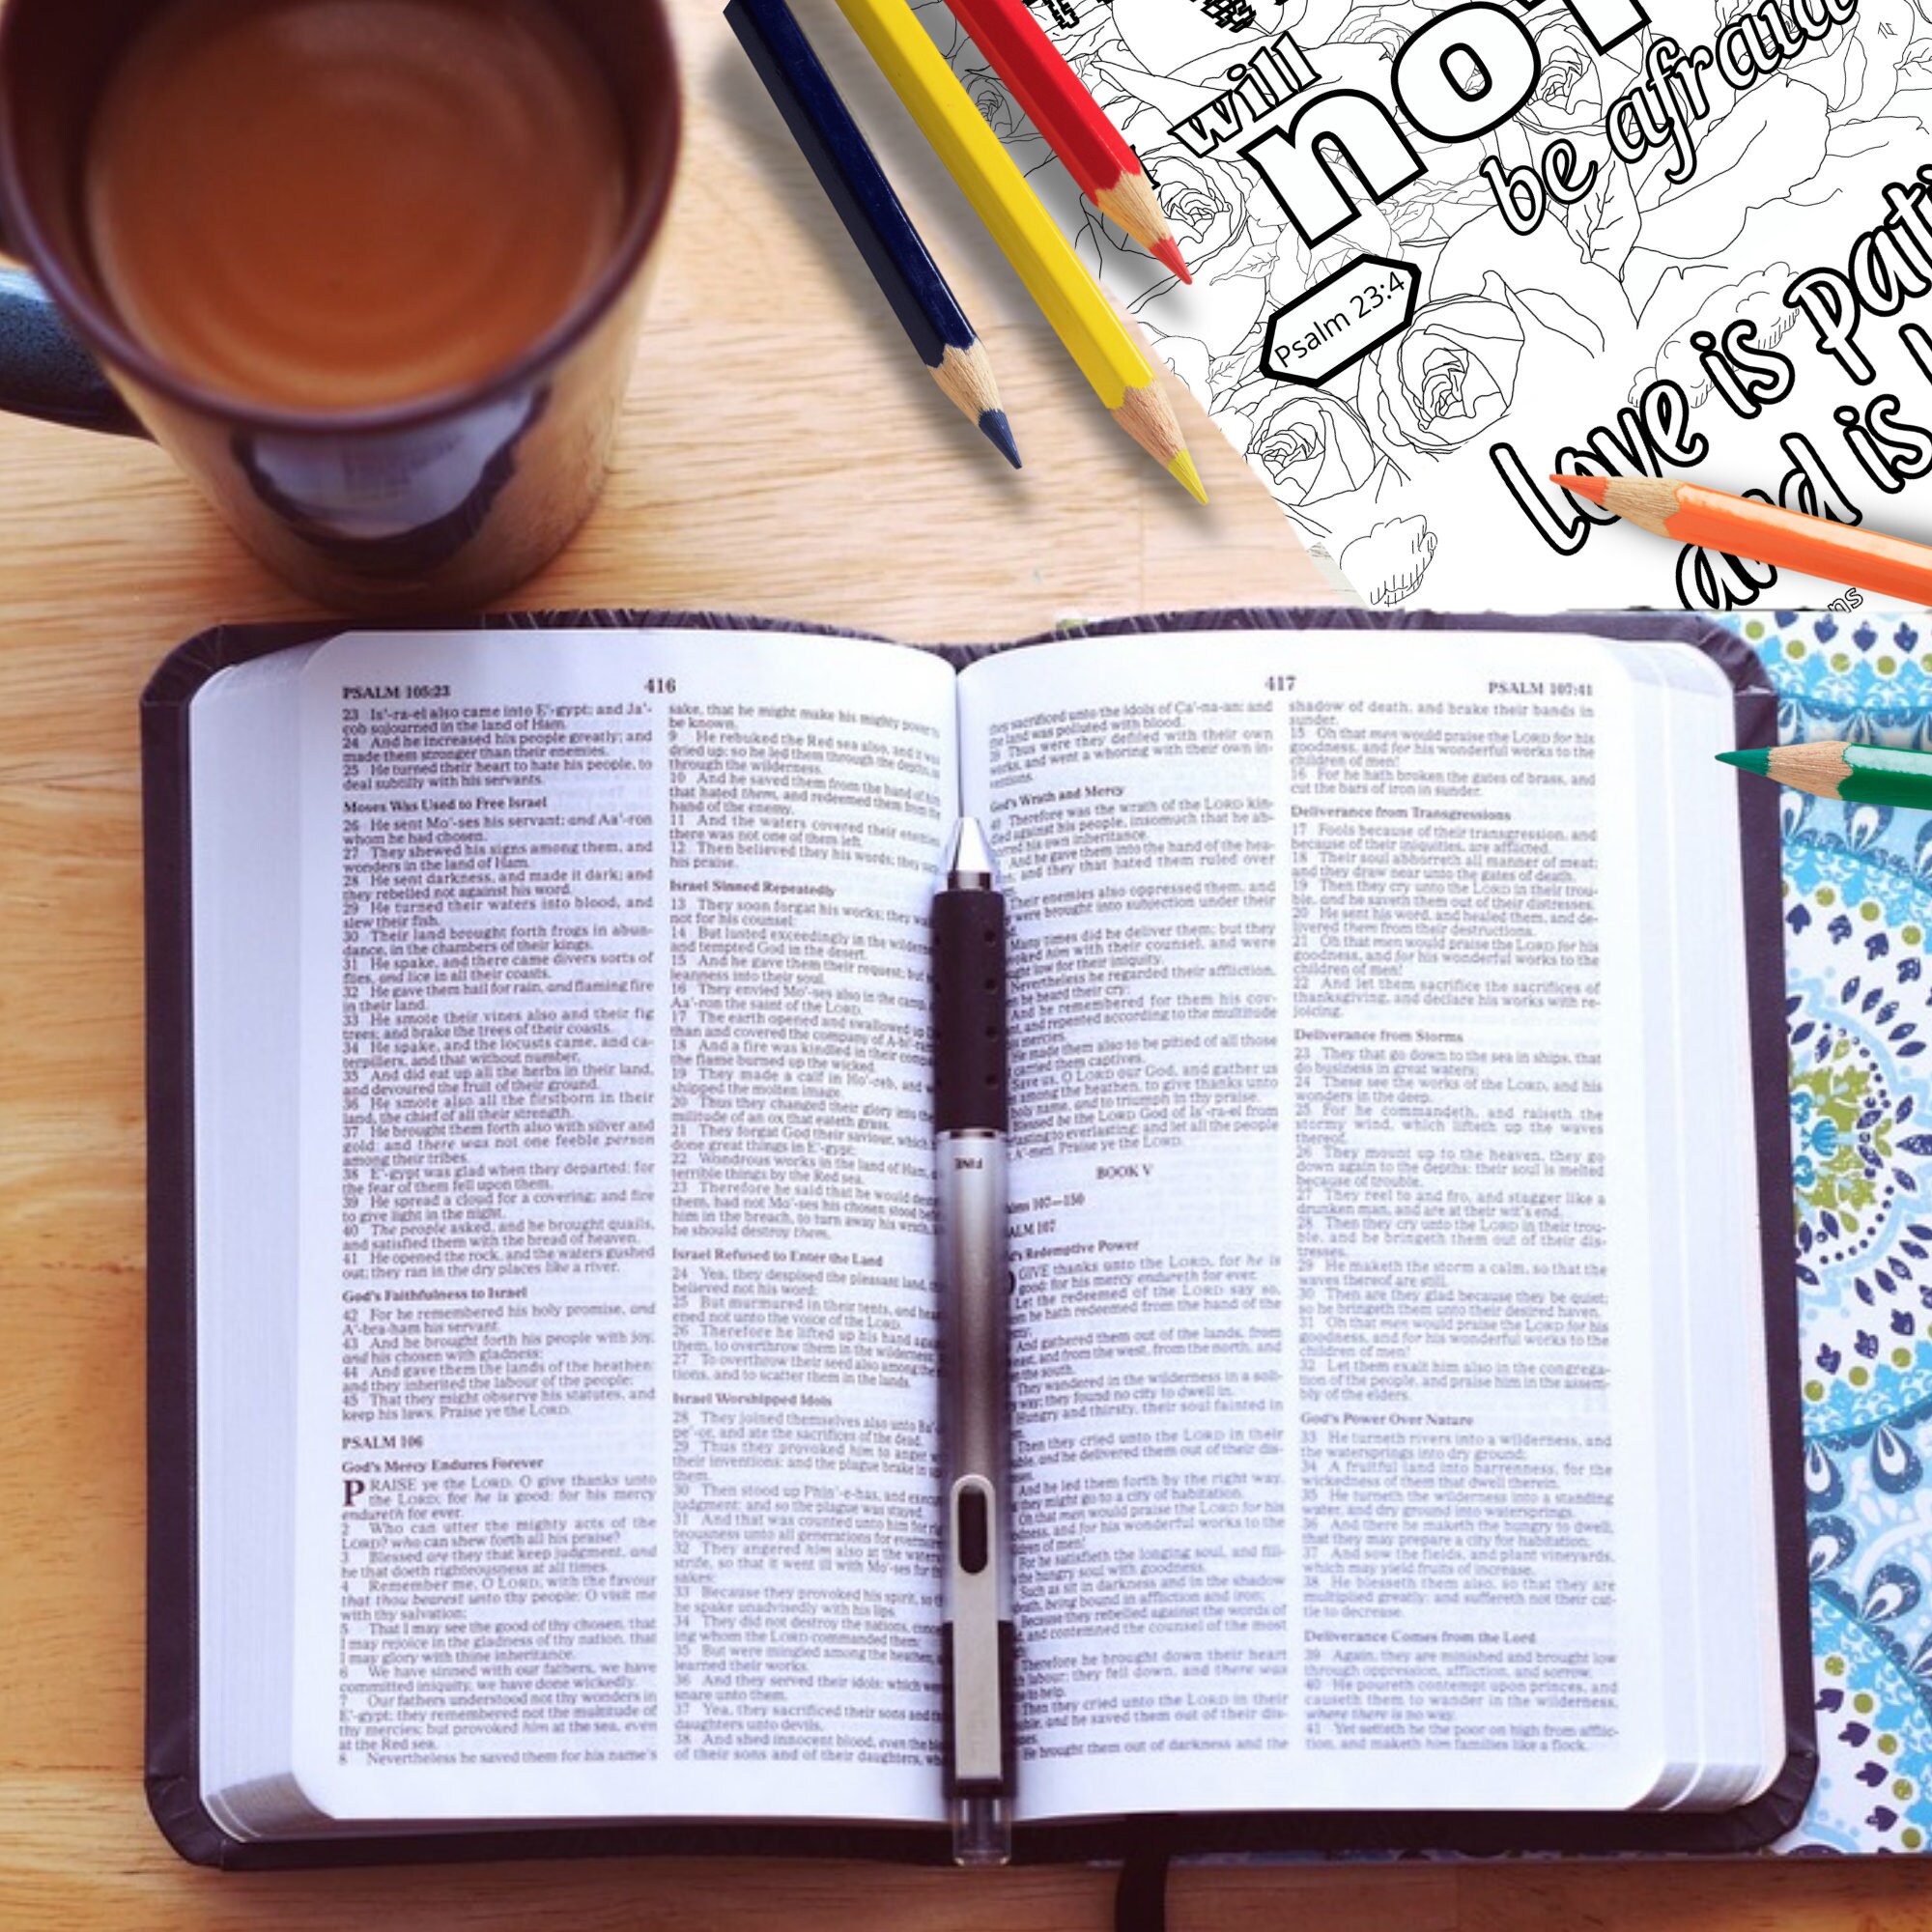 will
not
be afraid
Psalm 23:4
Love is pati
and is
PSALM 105:23
416
23 Is'-ra-el also came into E'-gypt; and Ja'-
cob sojourned in the land of Ham.
24 And he increased his people greatly; and
made them stronger than their enemies.
25 He turned their heart to hate his people, to
deal subtilly with his servants.
Moses Was Used to Free Israel
26 He sent Mo'-ses his servant; and Aa'-ron
whom he had chosen.
27 They shewed his signs among them, and
wonders in the land of Ham.
28 He sent darkness, and made it dark; and
they rebelled not against his word.
29 He turned their waters into blood, and
slew their fish.
30 Their land brought forth frogs in abun-
dance, in the chambers of their kings.
31 He spake, and there came divers sorts of
flies, and lice in all their coasts.
32 He gave them hail for rain, and flaming fire
in their land.
33 He smote their vines also and their fig
trees; and brake the trees of their coasts.
34 He spake, and the locusts came, and ca-
terpillers, and that without number,
35 And did eat up all the herbs in their land,
and devoured the fruit of their ground.
36 He smote also all the firstborn in their
land, the chief of all their strength.
37 He brought them forth also with silver and
gold: and there was not one feeble person
among their tribes.
38 E'-gypt was glad when they departed: for
the fear of them fell upon them.
39 He spread a cloud for a covering; and fire
to give light in the night.
40 The people asked, and he brought quails,
and satisfied them with the bread of heaven.
41 He opened the rock, and the waters gushed
out; they ran in the dry places like a river.
God's Faithfulness to Israel
42 For he remembered his holy promise, and
A'-bra-ham his servant.
43 And he brought forth his people with joy,
and his chosen with gladness:
44 And gave them the lands of the heathen:
and they inherited the labour of the people;
45 That they might observe his statutes, and
keep his laws. Praise ye the LORD.
PSALM 106
God's Mercy Endures Forever
PRAISE ye the LORD. O give thanks unto
the LORD; for he is good: for his mercy
endureth for ever.
2 Who can utter the mighty acts of the
LORD? who can shew forth all his praise?
3 Blessed are they that keep judgment, and
he that doeth righteousness at all times.
4 Remember me, O LORD, with the favour
that thou bearest unto thy people: O visit me
with thy salvation;
5 That I may see the good of thy chosen, that
I may rejoice in the gladness of thy nation, that
I may glory with thine inheritance.
6 We have sinned with our fathers, we have
committed iniquity, we have done wickedly.
7 Our fathers understood not thy wonders in
E'-gypt; they remembered not the multitude of
thy mercies; but provoked him at the sea, even
at the Red sea.
8 Nevertheless he saved them for his name's
sake, that he might make his mighty power
be known.
9 He rebuked the Red sea also, and it was
dried up: so he led them through the depths, as
through the wilderness.
10 And he saved them from the hand of him
that hated them, and redeemed them from the
hand of the enemy.
11 And the waters covered their enemies:
there was not one of them left.
12 Then believed they his words; they
his praise.
Israel Sinned Repeatedly
13 They soon forgat his works; they
not for his counsel:
14 But lusted exceedingly in the
and tempted God in the desert.
15 And he gave them their request; but
leanness into their soul.
16 They envied Mo'-ses also in the camp,
Aa'-ron the saint of the LORD.
17 The earth opened and swallowed up
than and covered the company of A-bi'-ram.
18 And a fire was kindled in their
the flame burned up the wicked.
19 They made a calf in Ho'-reb, and
shipped the molten image.
20 Thus they changed their glory into the
militude of an ox that eateth grass.
21 They forgat God their saviour, which
done great things in E'-gypt;
22 Wondrous works in the land of Ham,
terrible things by the Red sea.
23 Therefore he said that he would
them, had not Mo'-ses his chosen stood
him in the breach, to turn away his wrath,
he should destroy them.
Israel Refused to Enter the Land
24 Yea, they despised the pleasant land,
believed not his word:
25 But murmured in their tents, and
ened not unto the voice of the LORD.
26 Therefore he lifted up his hand
them, to overthrow them in the wilderness:
27 To overthrow their seed also among the
tions, and to scatter them in the lands.
Israel Worshipped Idols
28 They joined themselves also unto
pe'-or, and ate the sacrifices of the dead.
29 Thus they provoked him to anger
their inventions: and the plague brake in
them.
30 Then stood up Phin'-e-has, and
judgment: and so the plague was stayed.
31 And that was counted unto him for
teousness unto all generations for
32 They angered him also at the
strife, so that it went ill with Mo'-ses for
sakes:
33 Because they provoked his spirit, so
he spake unadvisedly with his lips.
34 They did not destroy the nations,
ing whom the LORD commanded them:
35 But were mingled among the heathen,
learned their works.
36 And they served their idols: which
snare unto them.
37 Yea, they sacrificed their sons and
daughters unto devils,
38 And shed innocent blood, even the
of their sons and of their daughters,
417
PSALM 107:41
they sacrificed unto the idols of Ca'-na-an: and
the land was polluted with blood.
39 Thus were they defiled with their own
works, and went a whoring with their own in-
ventions.
God's Wrath and Mercy
40 Therefore was the wrath of the LORD kin-
against his people, insomuch that he ab-
his own inheritance.
And he gave them into the hand of the hea-
and they that hated them ruled over
Their enemies also oppressed them, and
were brought into subjection under their
Many times did he deliver them; but they
him with their counsel, and were
low for their iniquity.
Nevertheless he regarded their affliction,
he heard their cry:
And he remembered for them his cov-
and repented according to the multitude
mercies.
He made them also to be pitied of all those
carried them captives.
Save us, O LORD our God, and gather us
among the heathen, to give thanks unto
holy name, and to triumph in thy praise.
Blessed be the LORD God of Is'-ra-el from
to everlasting: and let all the people
A'-men. Praise ye the LORD.
BOOK V
107—150
107
Redemptive Power
GIVE thanks unto the LORD, for he is
good: for his mercy endureth for ever.
Let the redeemed of the LORD say so,
he hath redeemed from the hand of the
And gathered them out of the lands, from
east, and from the west, from the north, and
the south.
They wandered in the wilderness in a soli-
way; they found no city to dwell in.
Hungry and thirsty, their soul fainted in
Then they cried unto the LORD in their
and he delivered them out of their dis-
And he led them forth by the right way,
they might go to a city of habitation.
Oh that men would praise the LORD for his
and for his wonderful works to the
of men!
For he satisfieth the longing soul, and fill-
the hungry soul with goodness.
Such as sit in darkness and in the shadow
being bound in affliction and iron;
Because they rebelled against the words of
and contemned the counsel of the most
Therefore he brought down their heart
labour; they fell down, and there was
to help.
Then they cried unto the LORD in their
and he saved them out of their dis-
He brought them out of darkness and the
shadow of death, and brake their bands in
sunder.
15 Oh that men would praise the LORD for his
goodness, and for his wonderful works to the
children of men!
16 For he hath broken the gates of brass, and
cut the bars of iron in sunder.
Deliverance from Transgressions
17 Fools because of their transgression, and
because of their iniquities, are afflicted.
18 Their soul abhorreth all manner of meat;
and they draw near unto the gates of death.
19 Then they cry unto the LORD in their trou-
ble, and he saveth them out of their distresses.
20 He sent his word, and healed them, and de-
livered them from their destructions.
21 Oh that men would praise the LORD for his
goodness, and for his wonderful works to the
children of men!
22 And let them sacrifice the sacrifices of
thanksgiving, and declare his works with re-
joicing.
Deliverance from Storms
23 They that go down to the sea in ships, that
do business in great waters;
24 These see the works of the LORD, and his
wonders in the deep.
25 For he commandeth, and raiseth the
stormy wind, which lifteth up the waves
thereof.
26 They mount up to the heaven, they go
down again to the depths: their soul is melted
because of trouble.
27 They reel to and fro, and stagger like a
drunken man, and are at their wit's end.
28 Then they cry unto the LORD in their trou-
ble, and he bringeth them out of their dis-
tresses.
29 He maketh the storm a calm, so that the
waves thereof are still.
30 Then are they glad because they be quiet;
so he bringeth them unto their desired haven.
31 Oh that men would praise the LORD for his
goodness, and for his wonderful works to the
children of men!
32 Let them exalt him also in the congrega-
tion of the people, and praise him in the assem-
bly of the elders.
God's Power Over Nature
33 He turneth rivers into a wilderness, and
the watersprings into dry ground;
34 A fruitful land into barrenness, for the
wickedness of them that dwell therein.
35 He turneth the wilderness into a standing
water, and dry ground into watersprings.
36 And there he maketh the hungry to dwell,
that they may prepare a city for habitation;
37 And sow the fields, and plant vineyards,
which may yield fruits of increase.
38 He blesseth them also, so that they are
multiplied greatly; and suffereth not their cat-
tle to decrease.
Deliverance Comes from the Lord
39 Again, they are minished and brought low
through oppression, affliction, and sorrow.
40 He poureth contempt upon princes, and
causeth them to wander in the wilderness,
where there is no way.
41 Yet setteth he the poor on high from afflic-
tion, and maketh him families like a flock.
FINE